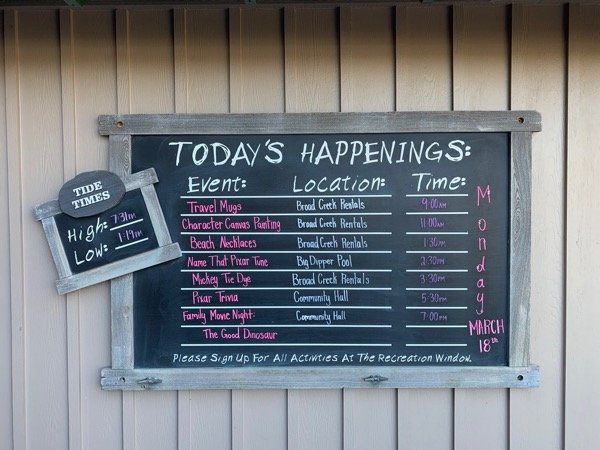 TODAY'S HAPPENINGS:
Event: Location: Time:
Travel Mugs Broad Creek Rentals 9:00 AM
Character Canvas Painting Broad Creek Rentals 11:00 AM
Beach Necklaces Broad Creek Rentals 1:30 PM
Name That Pixar Tune Big Dipper Pool 2:30 PM
Mickey Tie Dye Broad Creek Rentals 3:30 PM
Pixar Trivia Community Hall 5:30 PM
Family Movie Night: Community Hall 7:00 PM
The Good Dinosaur
Please Sign Up For All Activities At The Recreation Window.
Monday
MARCH
18th
TIDE
TIMES
High:
Low: